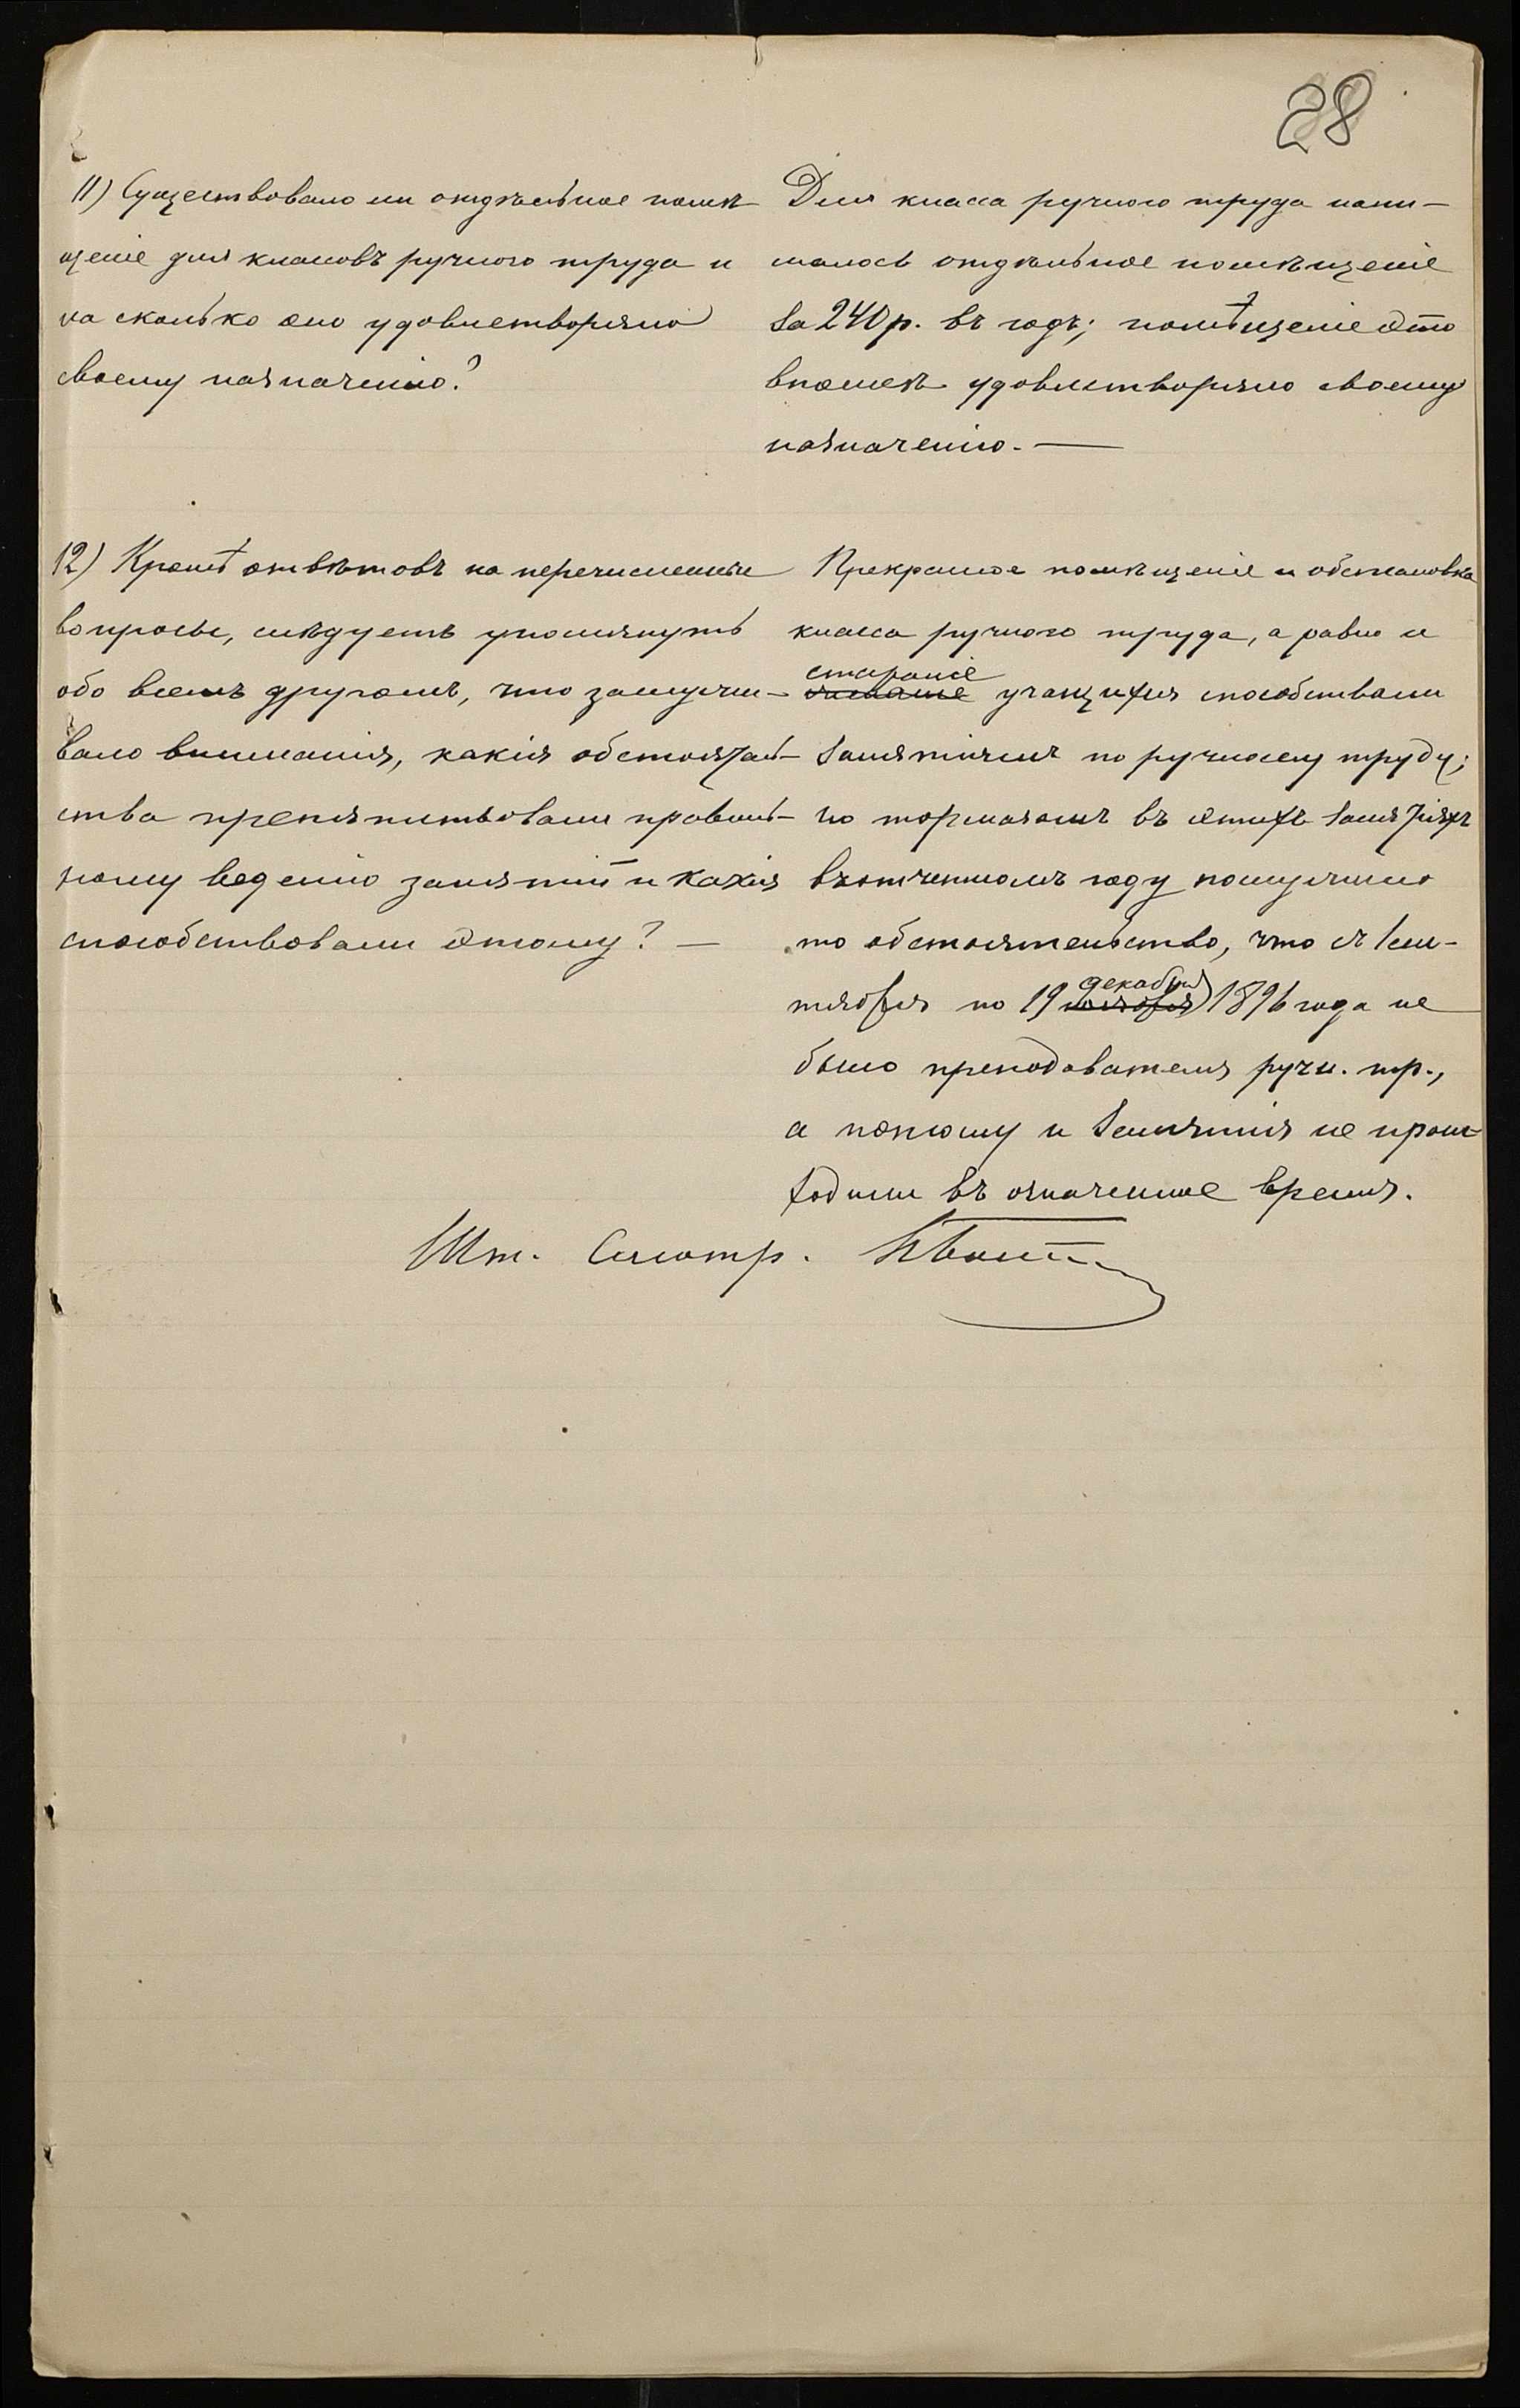 28
11) Существовало ли отдѣльное помѣ-
щеніе для классовъ ручного труда и
на сколько оно удовлетворяло
своему назначенію?
Для класса ручного труда нани-
малось отдѣльное помѣщеніе
за 240 р. въ годъ; помѣщеніе это
вполнѣ удовлетворяло своему
назначенію. —
12) Кромѣ отвѣтовъ на перечисленные
вопросы, слѣдуетъ упомянуть
обо всемъ другомъ, что заслужи-
вало вниманія, какія обстоятель-
ства препятствовали правиль-
ному веденію занятій и какія
способствовали этому? —
Прекрасное помѣщеніе и обстановка
класса ручного труда, а равно и
стараніе
учащихся способствовали
занятіямъ по ручному труду;
но тормазомъ въ этихъ занятіяхъ
въ отчетномъ году послужило
то обстоятельство, что съ сен-
тября по 19 декабря 1896 года не
было преподавателя ручн. тр.,
а потому и занятія не проис-
ходили въ означенное время.
Шт. Смотр.